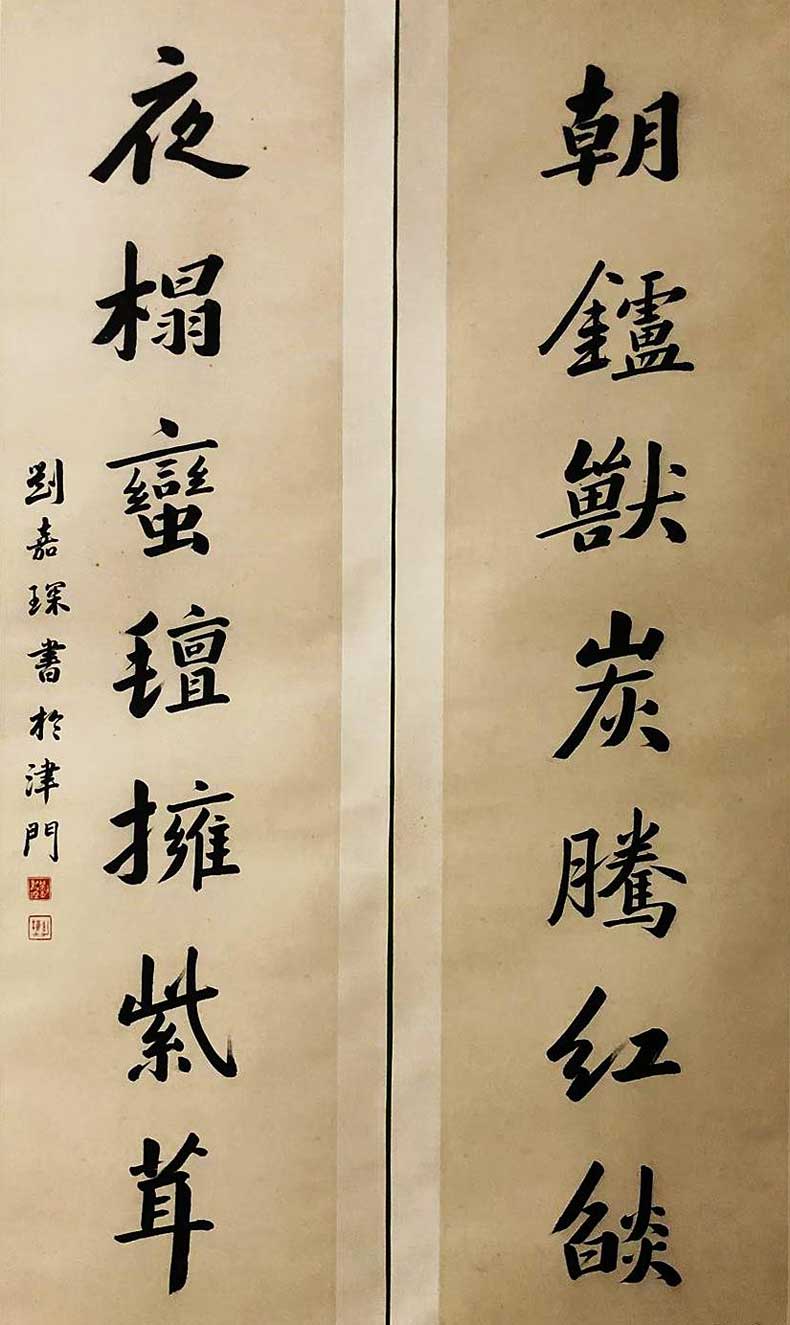 朝鑪獸炭騰紅燄
夜榻蠻氊擁紫茸
劉嘉琛書於津門